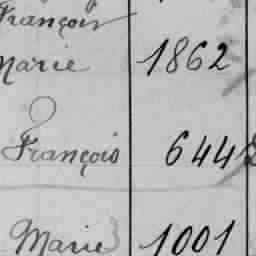 François
Marie 1862
François 644
Marie 1001